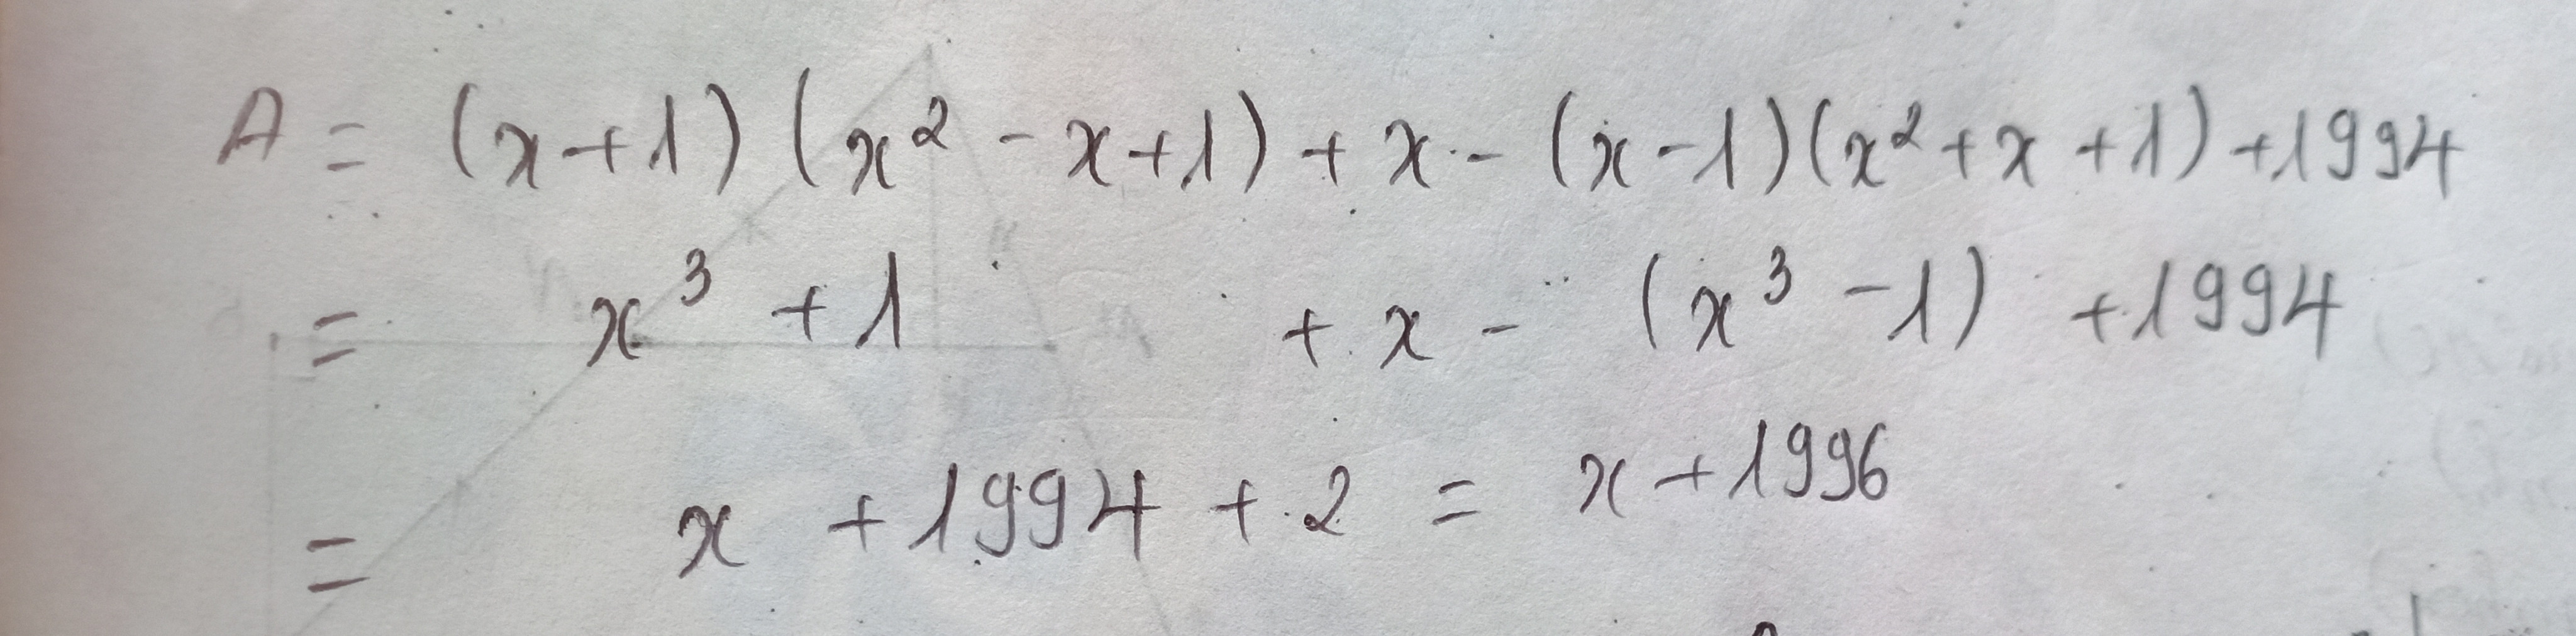 A = (x+1) (x² - x+1) + x - (x-1)(x²+x+1)+1994
= x³ +1 + x - (x³ -1) +1994
= x +1994 + 2 = x+1996